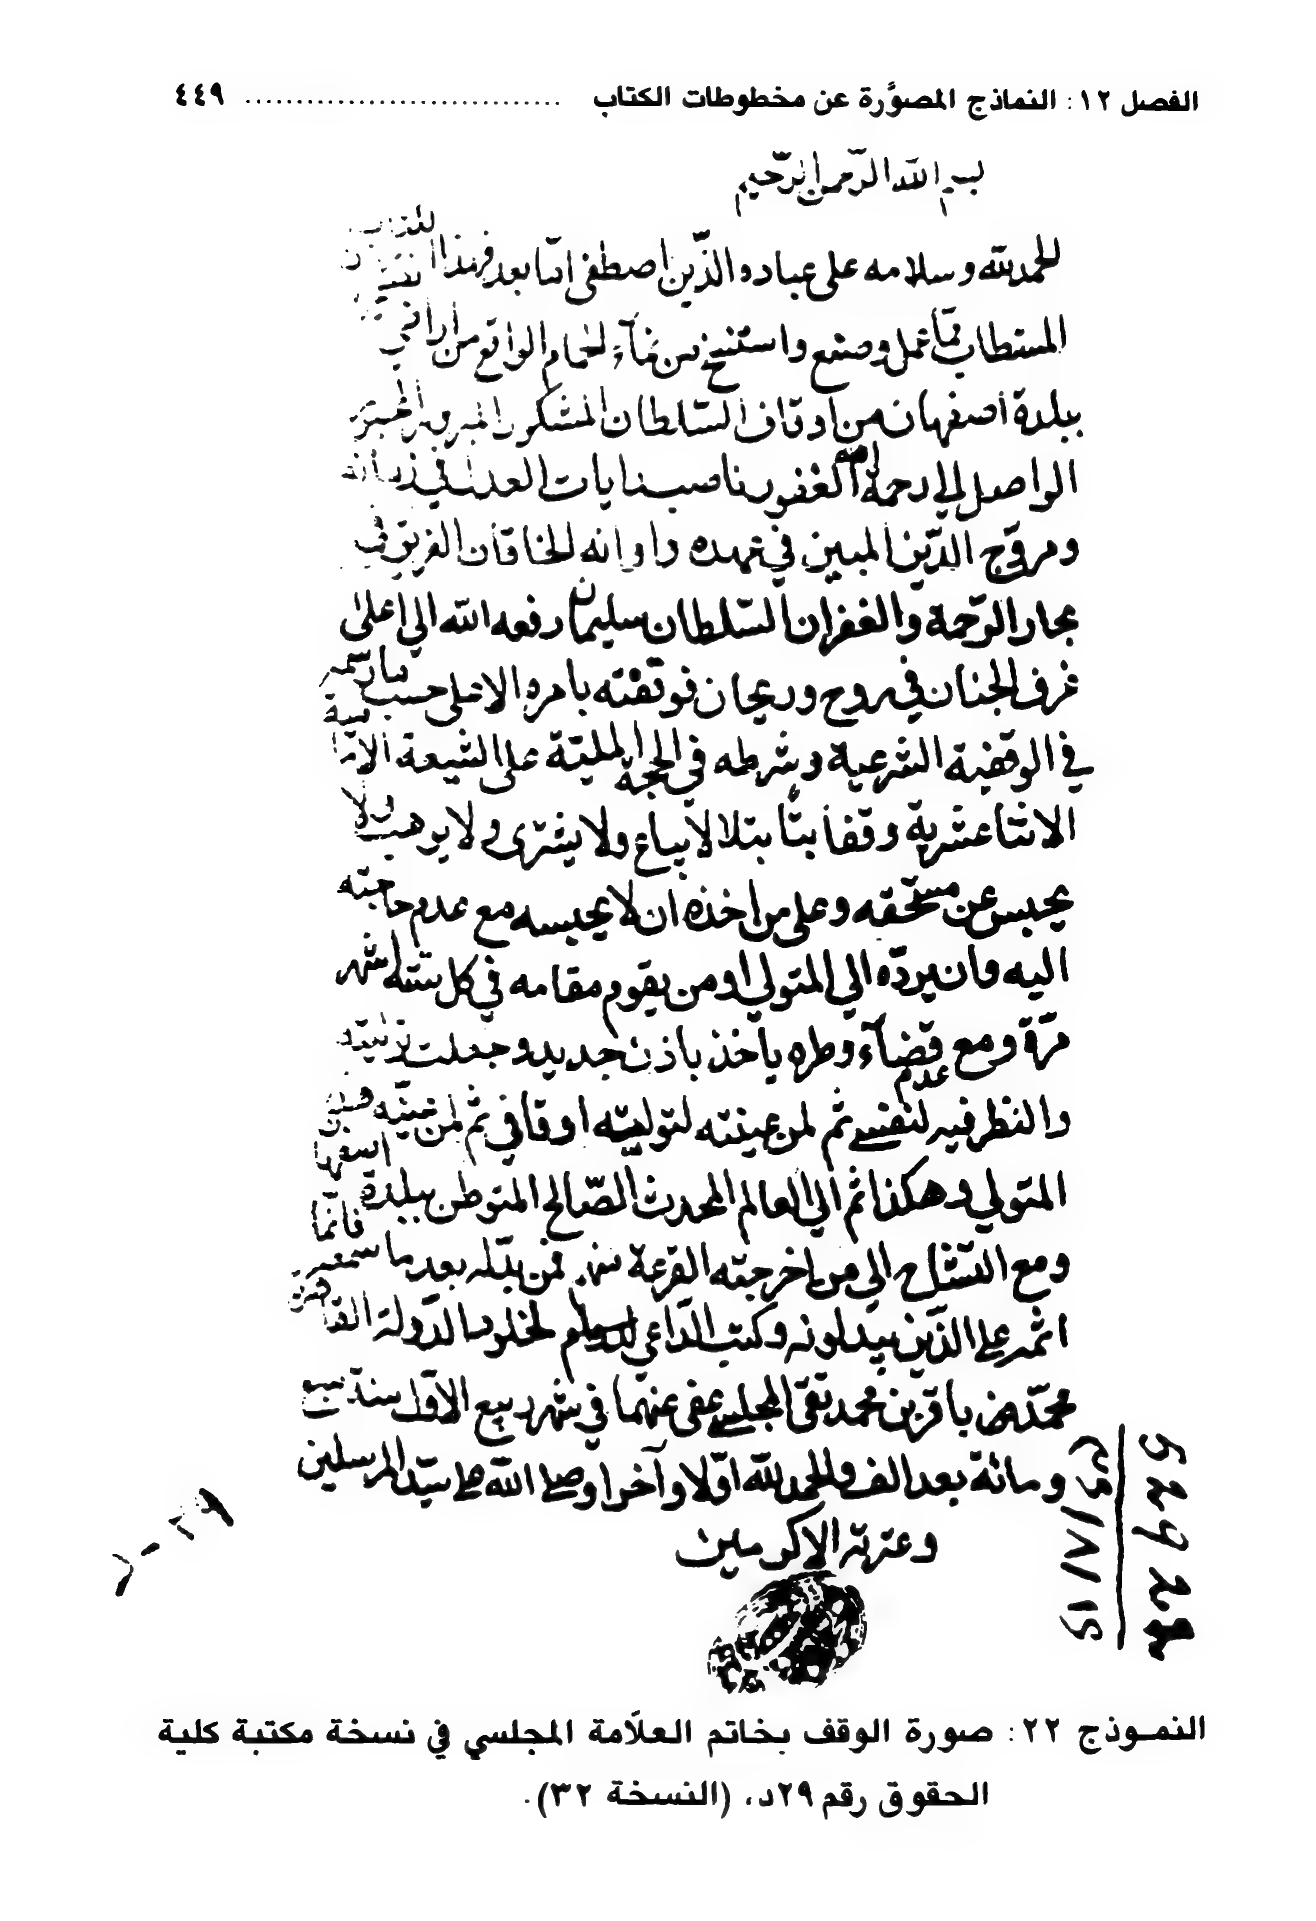 الفصل ١٢: النماذج المصوَّرة عن مخطوطات الكتاب ........................ ٤٤٩
بسم الله الرّحمن الرّحيم
الحمد لله وسلامه على عباده الذّين اصطفى امّا بعد فهذا
المستطاب ممّا عمل وصنع واستنسخ من نمآء الحمام الواقع من اراضي
ببلدة اصفهان من اوقاف السّلطان المشكور المبرور
الواصل الى رحمة الله الغفور ناصب رايات العدل في زمانه
ومروّج الدّين المبين في عهده واوانه الخاقان الغريق في
بحار الرّحمة والغفران السّلطان سليمان رفعه الله الى اعلى
غرف الجنان في روح وريحان فوقفته بامره الاعلى حسب ما رسمه
في الوقفية الشرعية وشرطه في الحجة المليّة على الشيعة الاماميّة
الاثنا عشرية وقفا بتّا بتلا لا يباع ولا يشرى ولا يوهب ولا
يحبس عن مستحقه وعلى من اخذه ان لا يحبسه مع عدم حاجته
اليه وان يردّه الى المتولي او من يقوم مقامه في كل ستّة اشهر
مرّة ومع عدم قضآء وطره ياخذ باذن جديد وجعلت توليته
والنظر فيه لنفسي ثم لمن عينته لتولية اوقافي ثم لمن عيّنه
المتولي وهكذا ثم الى العالم المحدث الصّالح المتوطن ببلدة
ومع التشاح الى من اخرجته القرعة منهم فمن بدّله بعد ما سمعه فانّما
اثمه على الذّين يبدلونه وكتب الدّاعي لخلود الدّولة القاهرة
محمّد باقر بن محمد تقي المجلسي عفي عنهما في شهر ربيع الاوّل سنة سبع
ومائة بعد الالف والحمد لله اوّلا وآخرا وصلى الله على سيّد المرسلين
وعترته الاكرمين
٢٩ - د
النمـوذج ٢٢: صورة الوقف بخاتم العلاّمة المجلسي في نسخة مكتبة كلية
الحقوق رقم ٢٩د، (النسخة ٣٢).